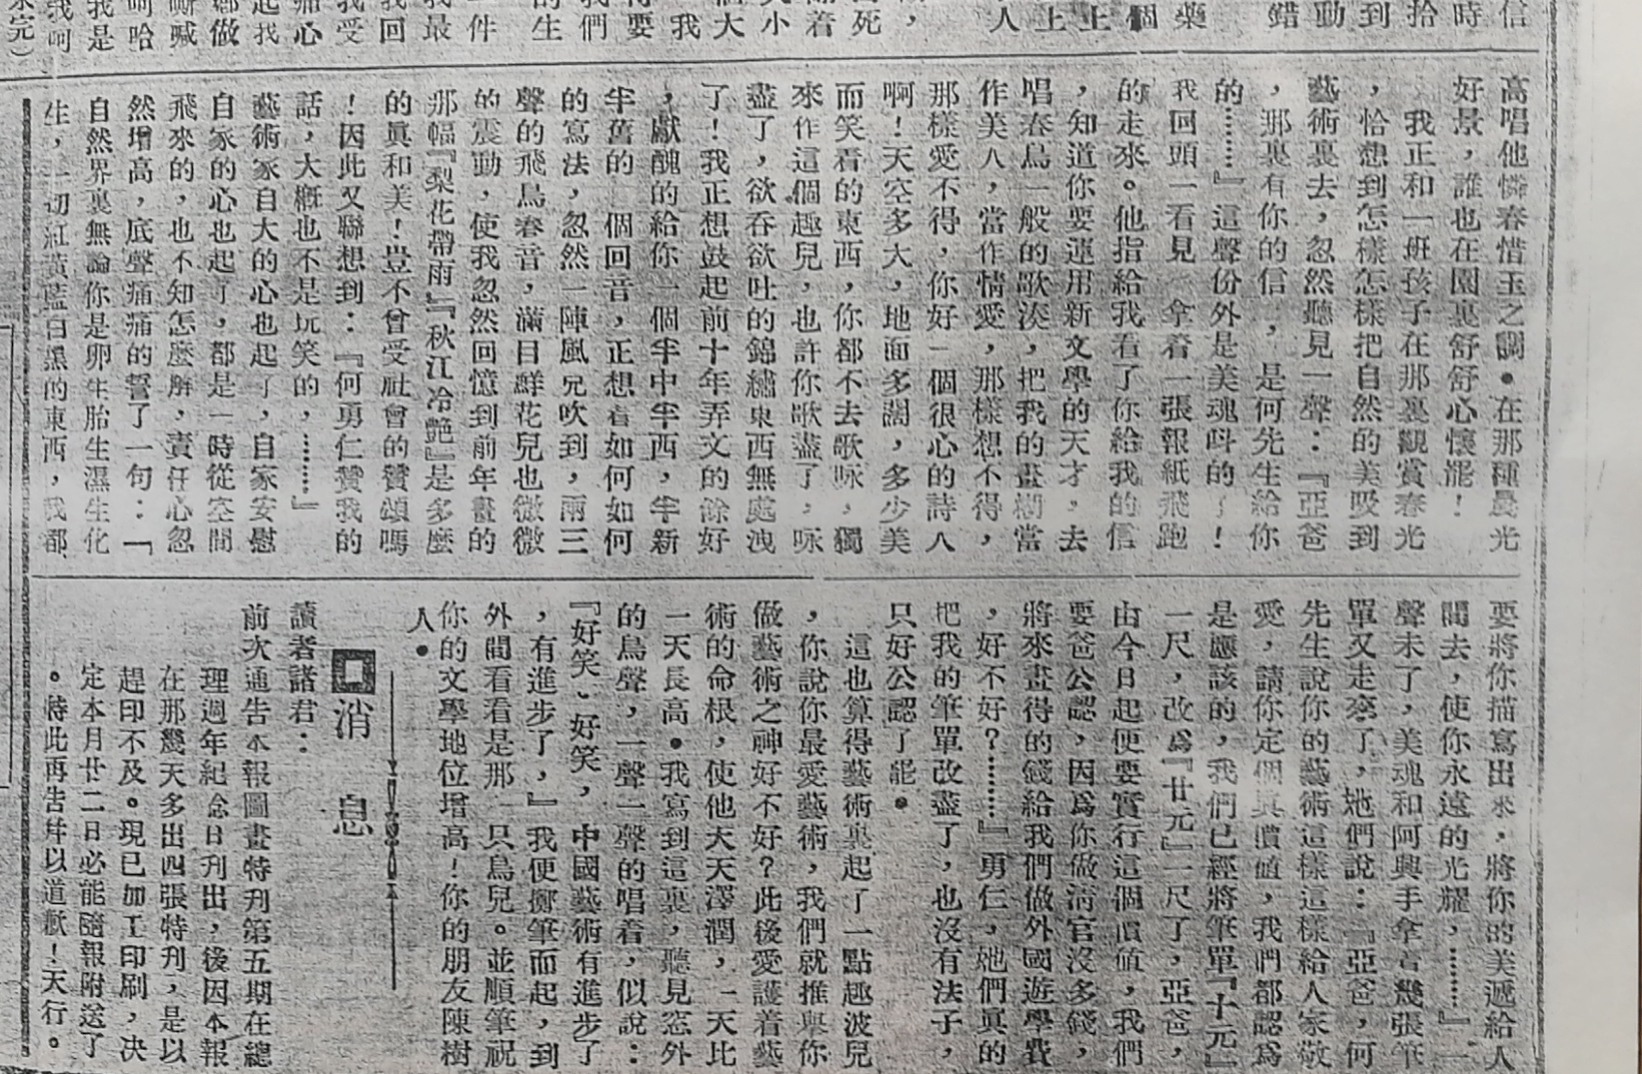 高唱他憐春惜玉之調•在那種晨光
好景，誰也在園裏舒舒心懷罷！
我正和一班孩子在那裏觀賞春光
，恰想到怎樣怎樣把自然的美吸到
藝術裏去，忽然聽見一聲：『亞爸
，那裏有你的信，是何先生給你
的………』這聲份外是美魂呌的了！
我回頭一看見 拿着一張報紙飛跑
的走來。他指給我看了你給我的信
，知道你要運用新文學的天才，去
唱春鳥一般的歌湊，把我的畫樹當
作美人，當作情愛，那樣想不得，
那樣愛不得，你好一個很心的詩人
啊！天空多大，地面多闊，多少美
而笑看的東西，你都不去歌咏，獨
來作這個趣兒，也許你歌盡了，咏
盡了，欲吞欲吐的錦繡東西無處洩
了！我正想鼓起前十年弄文的餘好
，獻醜的給你一個半中半西，半新
半舊的一個回音，正想着如何如何
的寫法，忽然一陣風兒吹到，兩三
聲的飛鳥春音，滿目鮮花兒也微微
的震動，使我忽然回憶到前年畫的
那幅『梨花帶雨』『秋江冷艷』是多麼
的眞和美！豈不曾受社會的贊頌嗎
！因此又聯想到：『何勇仁贊我的
話，大槪也不是玩笑的，………』
藝術家自大的心也起了，自家安慰
自家的心也起了，都是一時從空間
飛來的，也不知怎麼解，責任心忽
然增高，底聲痛痛的誓了一句：『
自然界裏無論你是卵生胎生濕生化
生，一切紅黃藍白黑的東西，我都
要將你描寫出來，將你的美遞給人
間去，使你永遠的光耀，………』一
聲未了，美魂和阿興手拿着幾張筆
單又走來了，她們說：『亞爸，何
先生說你的藝術這樣這樣給人家敬
愛，請你定個眞價値，我們都認爲
是應該的，我們已經將筆單『十元』
一尺，改爲『廿元』一尺了，亞爸，
由今日起便要實行這個價値，我們
要爸公認，因爲你做淸官沒多錢，
將來畫得的錢給我們做外國遊學費
，好不好？………』勇仁，她們眞的
把我的筆單改盡了，也沒有法子，
只好公認了罷•
這也算得藝術裏起了一點趣波兒
，你說你最愛藝術，我們就推舉你
做藝術之神好不好？此後愛護着藝
術的命根，使他天天澤潤，一天比
一天長高•我寫到這裏，聽見窓外
的鳥聲，一聲一聲的唱着，似說：
『好笑、好笑，中國藝術有進步了
，有進步了，』我便擲筆而起，到
外間看看是那一只鳥兒。並順筆祝
你的文學地位增高！你的朋友陳樹
人•
消息
讀者諸君：
前次通告本報圖畫特刊第五期在總
理週年紀念日刊出，後因本報
在那幾天多出四張特刊，是以
趕印不及。現已加工印刷，决
定本月廿二日必能隨報附送了
。特此再告幷以道歉！天行。